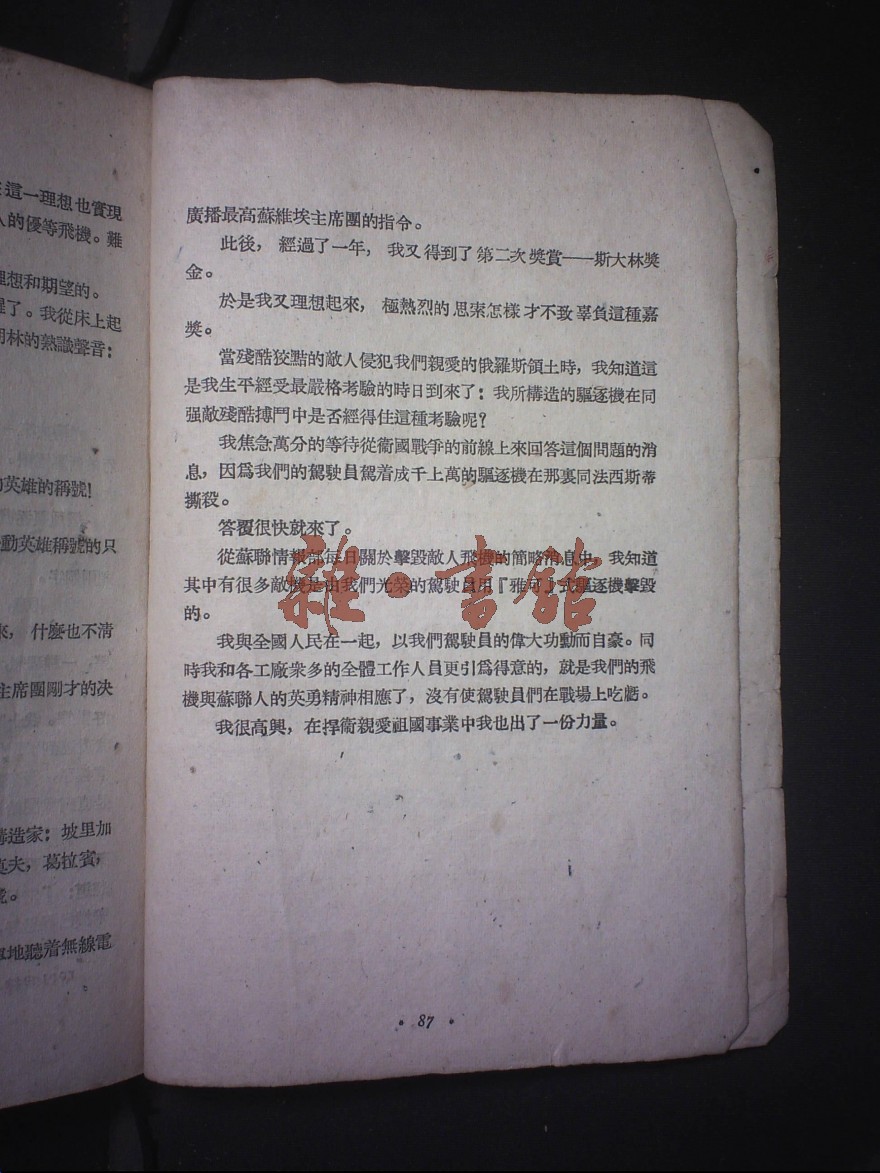 這一理想也實現
人的優等飛機。難
理想和期望的。
醒了。我從床上起
明林的熟識聲音：
的英雄的稱號！
動英雄稱號的只
來，什麽也不清
主席團剛才的决
構造家：坡里加
真夫，葛拉賓，
地聽着無線電
廣播最高蘇維埃主席團的指令。
此後，經過了一年，我又得到了第二次獎賞——斯大林獎
金。
於是我又理想起來，極熱烈的思索怎樣才不致辜負這種嘉
獎。
當殘酷狡黠的敵人侵犯我們親愛的俄羅斯領土時，我知道這
是我生平經受最嚴格考驗的時日到來了：我所構造的驅逐機在同
强敵殘酷搏鬥中是否經得住這種考驗呢？
我焦急萬分的等待從衞國戰爭的前線上來回答這個問題的消
息，因爲我們的駕駛員駕着成千上萬的驅逐機在那裏同法西斯蒂
撕殺。
答覆很快就來了。
從蘇聯情報部每日關於擊毀敵人飛機的簡略消息中，我知道
其中有很多敵機是由我們光荣的駕駛員用『雅可』式驅逐機擊毀
的。
我與全國人民在一起，以我們駕駛員的偉大功勳而自豪。同
時我和各工廠衆多的全體工作人員更引爲得意的，就是我們的飛
機與蘇聯人的英勇精神相應了，沒有使駕駛員們在戰場上吃虧。
我很高興，在捍衞親愛祖國事業中我也出了一份力量。
雜·書館
· 87 ·